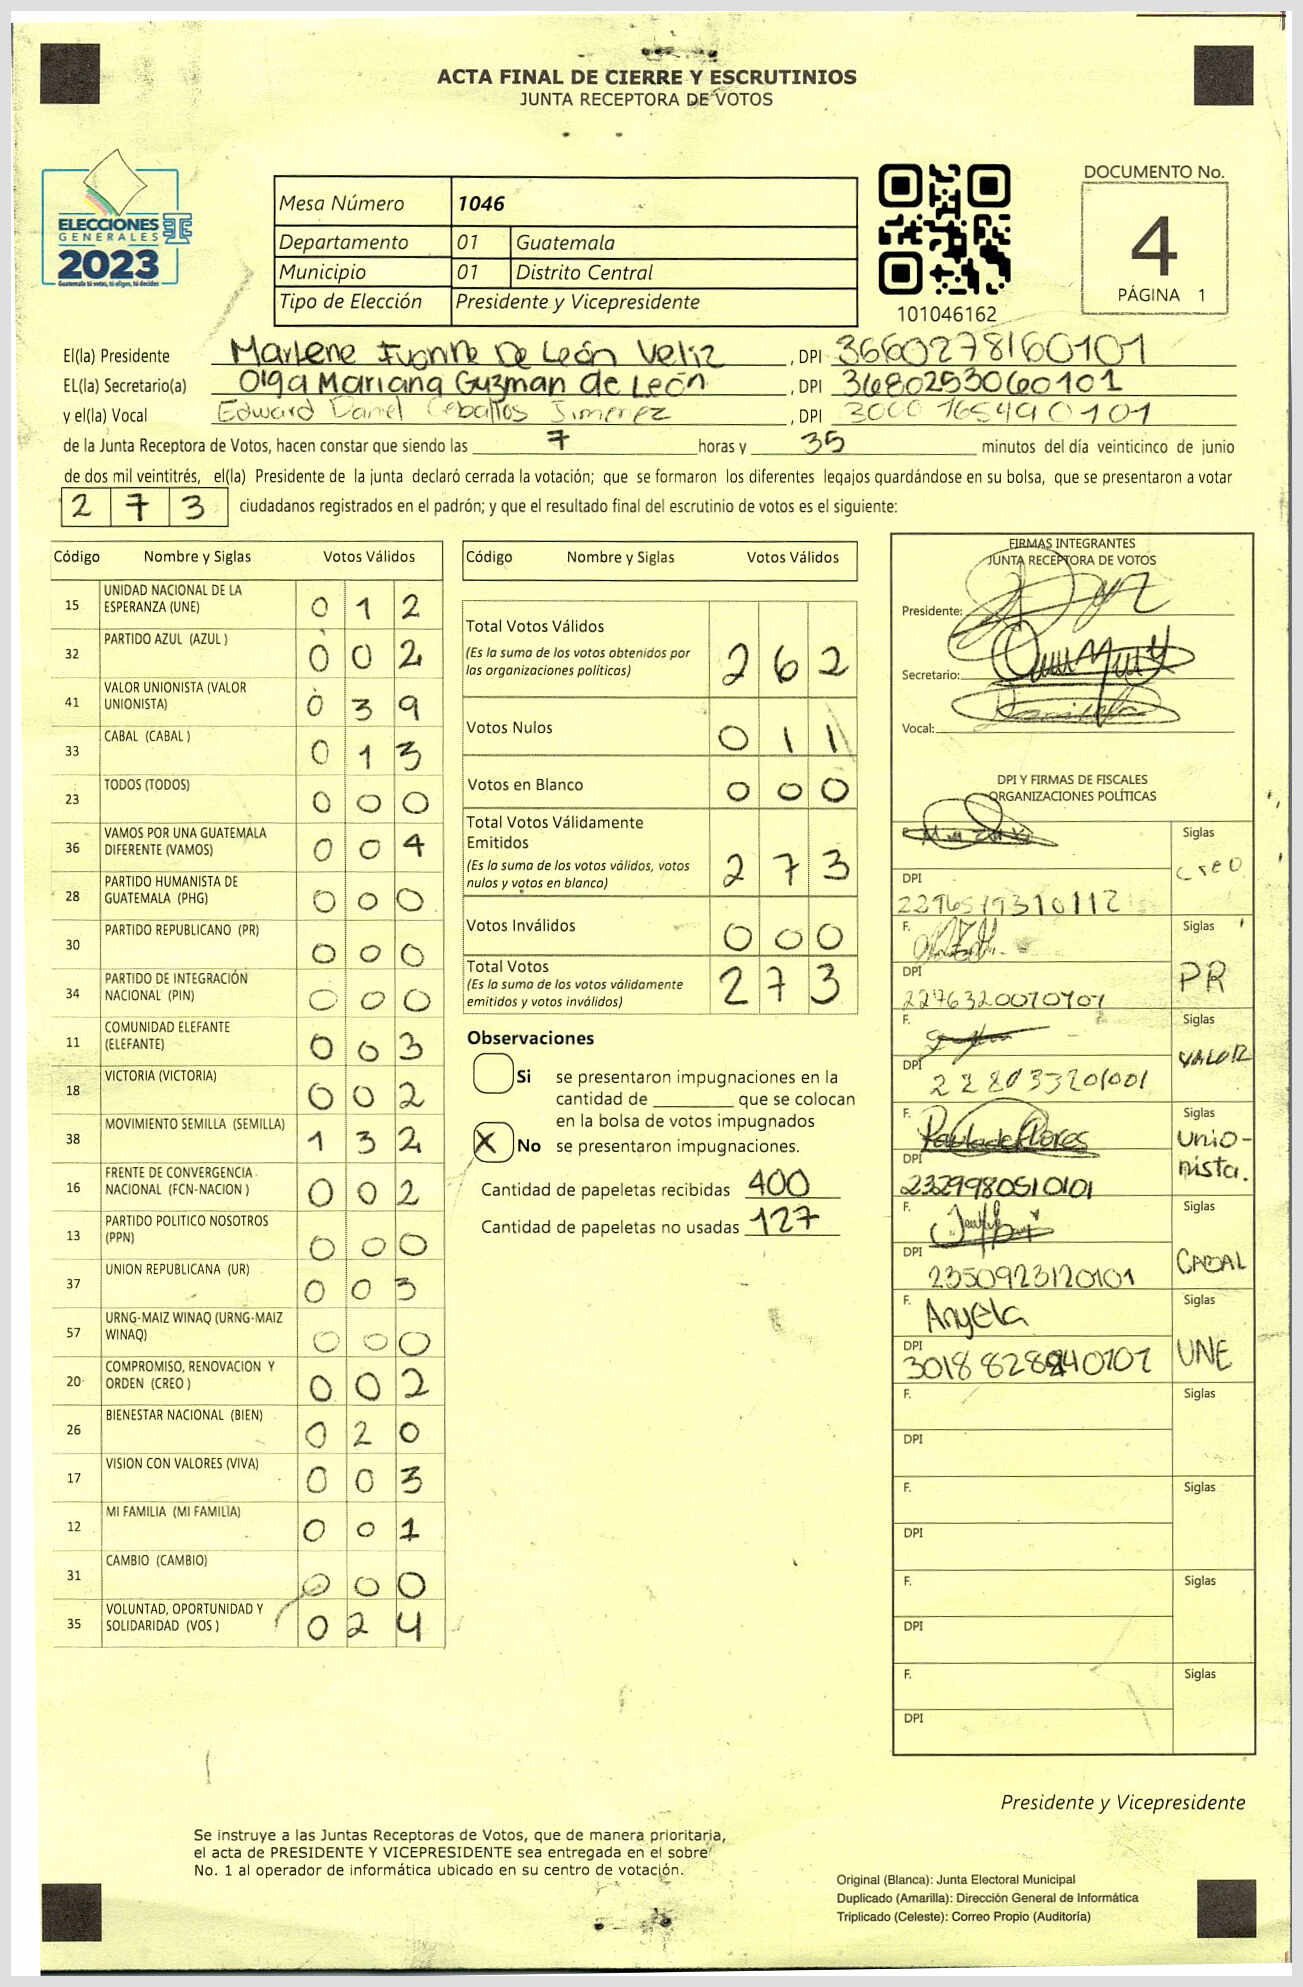 ACTA FINAL DE CIERRE Y ESCRUTINIOS
JUNTA RECEPTORA DE VOTOS
ELECCIONES
GENERALES
2023
Guatemala tú votas, tú eliges, tú decides
Mesa Número 1046
Departamento 01 Guatemala
Municipio 01 Distrito Central
Tipo de Elección Presidente y Vicepresidente
101046162
DOCUMENTO No.
4
PÁGINA 1
El(la) Presidente Marlene Ivonne De León Veliz, DPI 3660278160101
EL(la) Secretario(a) Olga Mariana Guzman de León, DPI 3680253060101
y el(la) Vocal Edward Daniel Ceballos Jimenez, DPI 3000 765490101
de la Junta Receptora de Votos, hacen constar que siendo las 7 horas y 35 minutos del día veinticinco de junio
de dos mil veintitrés, el(la) Presidente de la junta declaró cerrada la votación; que se formaron los diferentes legajos guardándose en su bolsa, que se presentaron a votar
2 7 3 ciudadanos registrados en el padrón; y que el resultado final del escrutinio de votos es el siguiente:
Código Nombre y Siglas Votos Válidos
15 UNIDAD NACIONAL DE LA ESPERANZA (UNE) 0 1 2
32 PARTIDO AZUL (AZUL ) 0 0 2
41 VALOR UNIONISTA (VALOR UNIONISTA) 0 3 9
33 CABAL (CABAL ) 0 1 3
23 TODOS (TODOS) 0 0 0
36 VAMOS POR UNA GUATEMALA DIFERENTE (VAMOS) 0 0 4
28 PARTIDO HUMANISTA DE GUATEMALA (PHG) 0 0 0
30 PARTIDO REPUBLICANO (PR) 0 0 0
34 PARTIDO DE INTEGRACIÓN NACIONAL (PIN) 0 0 0
11 COMUNIDAD ELEFANTE (ELEFANTE) 0 0 3
18 VICTORIA (VICTORIA) 0 0 2
38 MOVIMIENTO SEMILLA (SEMILLA) 1 3 2
16 FRENTE DE CONVERGENCIA NACIONAL (FCN-NACION ) 0 0 2
13 PARTIDO POLITICO NOSOTROS (PPN) 0 0 0
37 UNION REPUBLICANA (UR) 0 0 3
57 URNG-MAIZ WINAQ (URNG-MAIZ WINAQ) 0 0 0
20 COMPROMISO, RENOVACION Y ORDEN (CREO ) 0 0 2
26 BIENESTAR NACIONAL (BIEN) 0 2 0
17 VISION CON VALORES (VIVA) 0 0 3
12 MI FAMILIA (MI FAMILIA) 0 0 1
31 CAMBIO (CAMBIO) 0 0 0
35 VOLUNTAD, OPORTUNIDAD Y SOLIDARIDAD (VOS ) 0 2 4
Código Nombre y Siglas Votos Válidos
Total Votos Válidos 2 6 2
(Es la suma de los votos obtenidos por
las organizaciones políticas)
Votos Nulos 0 1 1
Votos en Blanco 0 0 0
Total Votos Válidamente
Emitidos 2 7 3
(Es la suma de los votos válidos, votos
nulos y votos en blanco)
Votos Inválidos 0 0 0
Total Votos 2 7 3
(Es la suma de los votos válidamente
emitidos y votos inválidos)
Observaciones
Si se presentaron impugnaciones en la
cantidad de ________ que se colocan
en la bolsa de votos impugnados
X No se presentaron impugnaciones.
Cantidad de papeletas recibidas 400
Cantidad de papeletas no usadas 127
FIRMAS INTEGRANTES
JUNTA RECEPTORA DE VOTOS
Presidente:
Secretario:
Vocal:
DPI Y FIRMAS DE FISCALES
ORGANIZACIONES POLÍTICAS
Siglas creo
DPI
F. Siglas PR
DPI 2276320070101
F. Siglas VALOR
DPI 228033201001
F. Paula de Flores Siglas Unio-
nista.
DPI 2329980510101
F. Siglas CABAL
DPI 2350923120101
F. Angela Siglas UNE
DPI
F. Siglas
DPI
F. Siglas
DPI
F. Siglas
DPI
F. Siglas
DPI
Presidente y Vicepresidente
Se instruye a las Juntas Receptoras de Votos, que de manera prioritaria,
el acta de PRESIDENTE Y VICEPRESIDENTE sea entregada en el sobre
No. 1 al operador de informática ubicado en su centro de votación.
Original (Blanca): Junta Electoral Municipal
Duplicado (Amarilla): Dirección General de Informática
Triplicado (Celeste): Correo Propio (Auditoría)